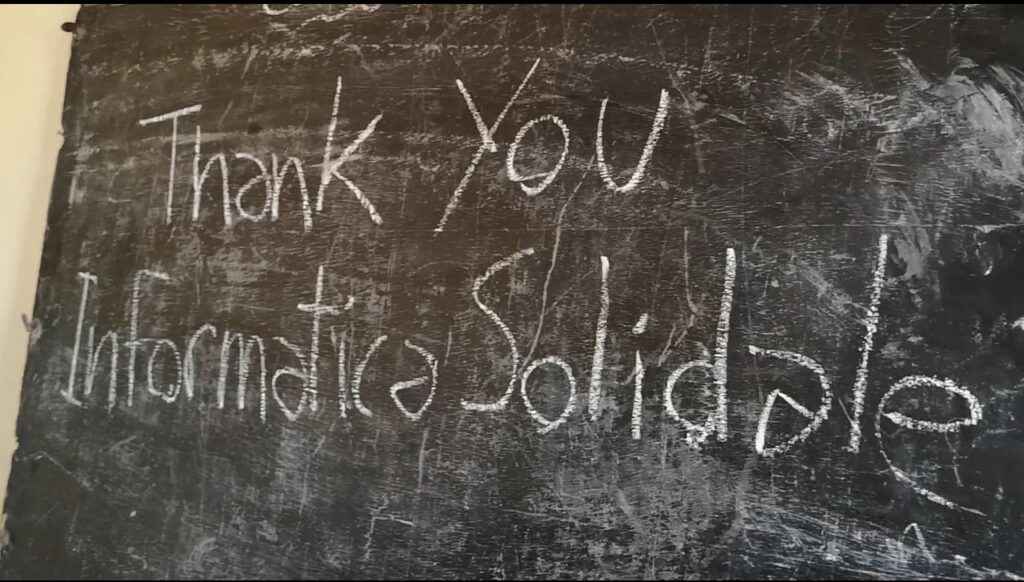 Thank You
Informatica Solidale